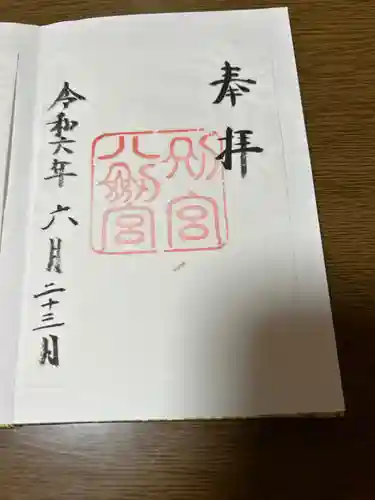 奉拝
別宮
八剱宮
令和六年六月二十三日